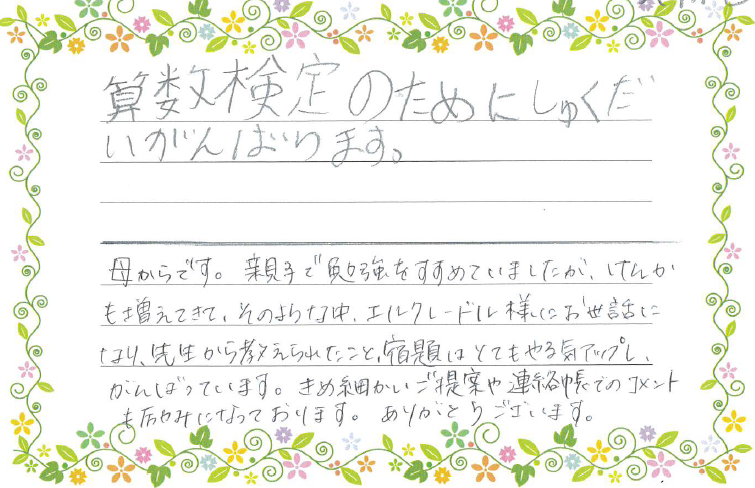 算数検定のためにしゅくだ
いがんばります。
母からです。親子で勉強をすすめていましたが、けんか
も増えてきて、そのような中、エルクレードル様にお世話に
なり、先生から教えられたこと、宿題はとてもやる気アップし、
がんばっています。きめ細かいご提案や連絡帳でのコメント
も励みになっております。ありがとうございます。